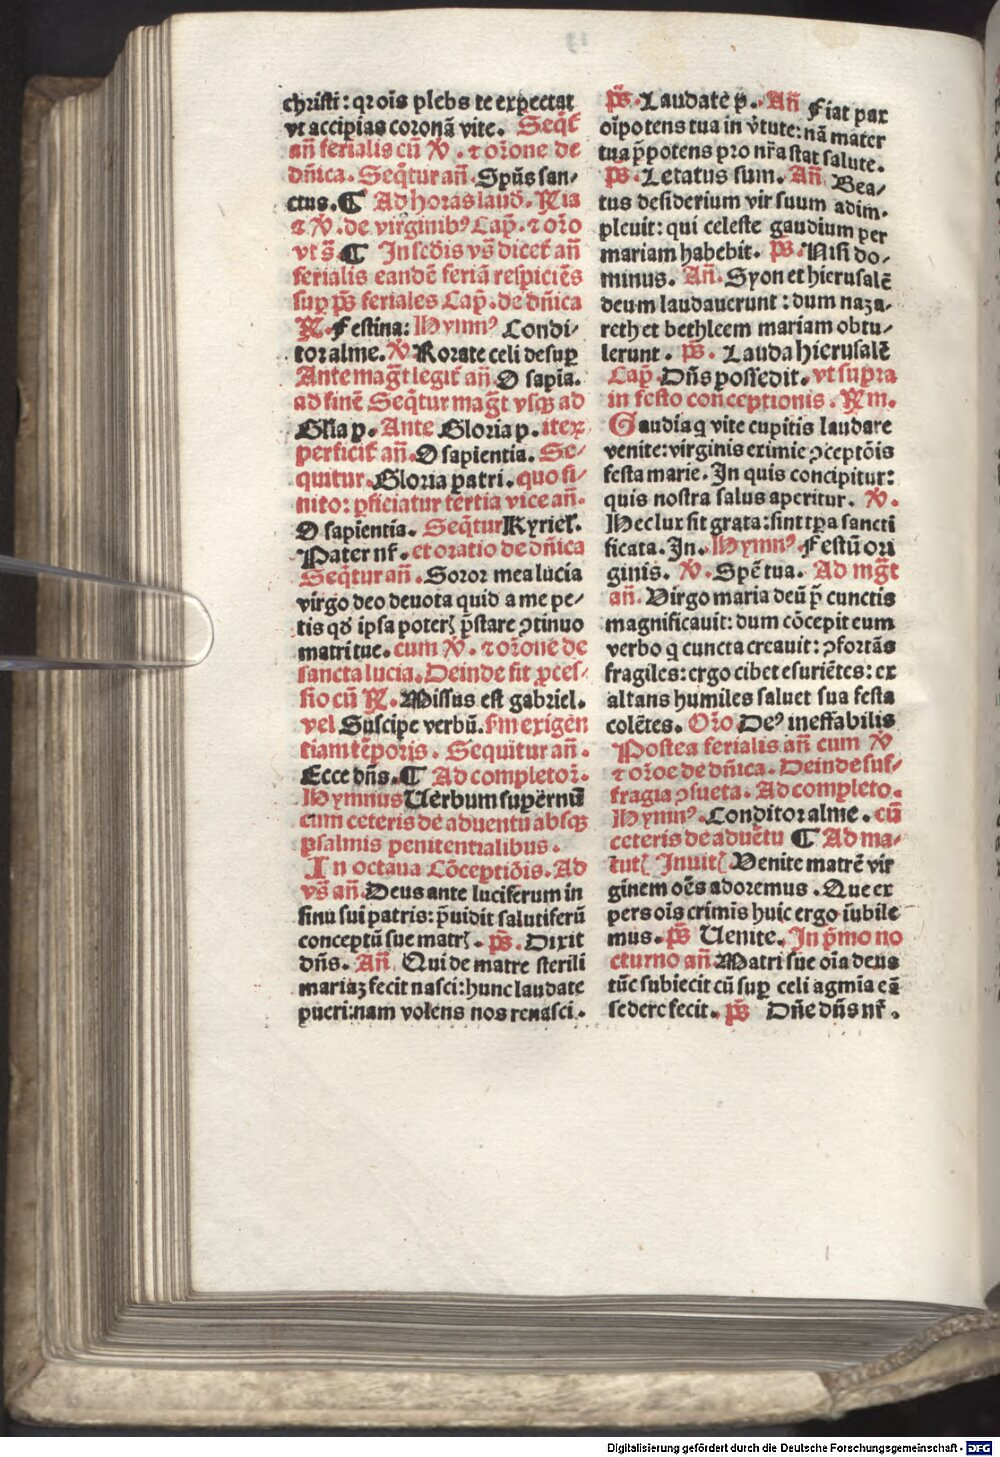 christi: qr oīs plebs te expectat
vt accipias coronā vite. Seqt̄
an̄ ferialis cū ℣. ⁊ or̄one de
dn̄ica. Seq̄tur an̄. Sp̄us san⸗
ctus. ¶ Ad horas laud. Ria
⁊ ℣. de virginibꝰ Cap̄. ⁊ or̄o
vt s̄. ¶ In scd̄is vs̄ dicet̄ an̄
ferialis eandē feriā respiciēs
sup̄ ps̄ feriales Cap̄. de dn̄ica
℟. Festina: Hymnꝰ Condi⸗
tor alme. ℣ Rorate celi desup̄
Ante maḡt legit̄ an̄. O sapīa.
ad finē Seq̄tur maḡt vsqꝫ ad
Gl̄ia p. Ante Gloria p. iterꝫ
perficit̄ an̄. O sapientia. Se⸗
quitur. Gloria patri. quo fi⸗
nito: ꝑficiatur tertia vice an̄.
O sapientia. Seq̄tur Kyriel̄.
Pater nr̄. et oratio de dn̄ica
Seq̄tur an̄. Soror mea lucia
virgo deo deuota quid a me pe⸗
tis qd̄ ipsa poteꝭ p̄stare ꝯtinuo
matri tue. cum ℣. ⁊ or̄one de
sancta lucia. Deinde fit ꝓces⸗
sio cū ℟. Missus est gabriel.
vel Suscipe verbū. s̄m exigen
tiam tēporis. Sequitur an̄.
Ecce dn̄s. ¶ Ad completor̄.
Hymnus Uerbum supernū
cum ceteris de aduentu absqꝫ
psalmis penitentialibus.
In octaua Cōceptiōis. Ad
vs̄ an̄. Deus ante luciferum in
sinu sui patris: p̄uidit salutiferū
conceptū sue matrꝭ. ps̄. Dixit
dn̄s. An̄. Qui de matre sterili
mariaꝫ fecit nasci: hunc laudate
pueri: nam volens nos renasci.
ps̄. Laudate p. An̄ Fiat pax
oīpotens tua in v̄tute: nā mater
tua p̄potens pro nr̄a stat salute.
ps̄. Letatus sum. An̄ Bea⸗
tus desiderium vir suum adim⸗
pleuit: qui celeste gaudium per
mariam habebit. ps̄. Nisi do⸗
minus. An̄. Syon et hierusalē
deum laudauerunt: dum naza⸗
reth et bethleem mariam obtu⸗
lerunt. ps̄. Lauda hierusalē
Cap̄. Dn̄s possedit. vt supra
in festo conceptionis. Rm.
Gaudia q̄ vite cupitis laudare
venite: virginis eximie ꝯceptōis
festa marie. In quis concipitur:
quis nostra salus aperitur. ℣.
Hec lux sit grata: sint tꝑa sancti
ficata. In. Hymnꝰ. Festū ori
ginis. ℣. Spē tua. Ad mḡt
an̄. Virgo maria deū p̄ cunctis
magnificauit: dum cōcepit eum
verbo q̄ cuncta creauit: ꝯfortās
fragiles: ergo cibet esuriētes: ex
altans humiles saluet sua festa
colētes. Or̄o Deꝰ ineffabilis
Postea ferialis an̄ cum ℣
⁊ or̄oe de dn̄ica. Deinde suf⸗
fragia ꝯsueta. Ad completo.
Hymnꝰ. Conditor alme. cū
ceteris de aduētu ¶ Ad ma⸗
tutꝭ Inuitꝭ Venite matrē vir
ginem oēs adoremus. Que ex
pers oīs crimīs huic ergo iubile
mus. ps̄ Uenite. In p̄mo no
cturno an̄ Matri sue oīa deus
tūc subiecit cū sup̄ celi agmīa eā
sedere fecit. ps̄ Dn̄e dn̄s nr̄.
Digitalisierung gefördert durch die Deutsche Forschungsgemeinschaft - DFG